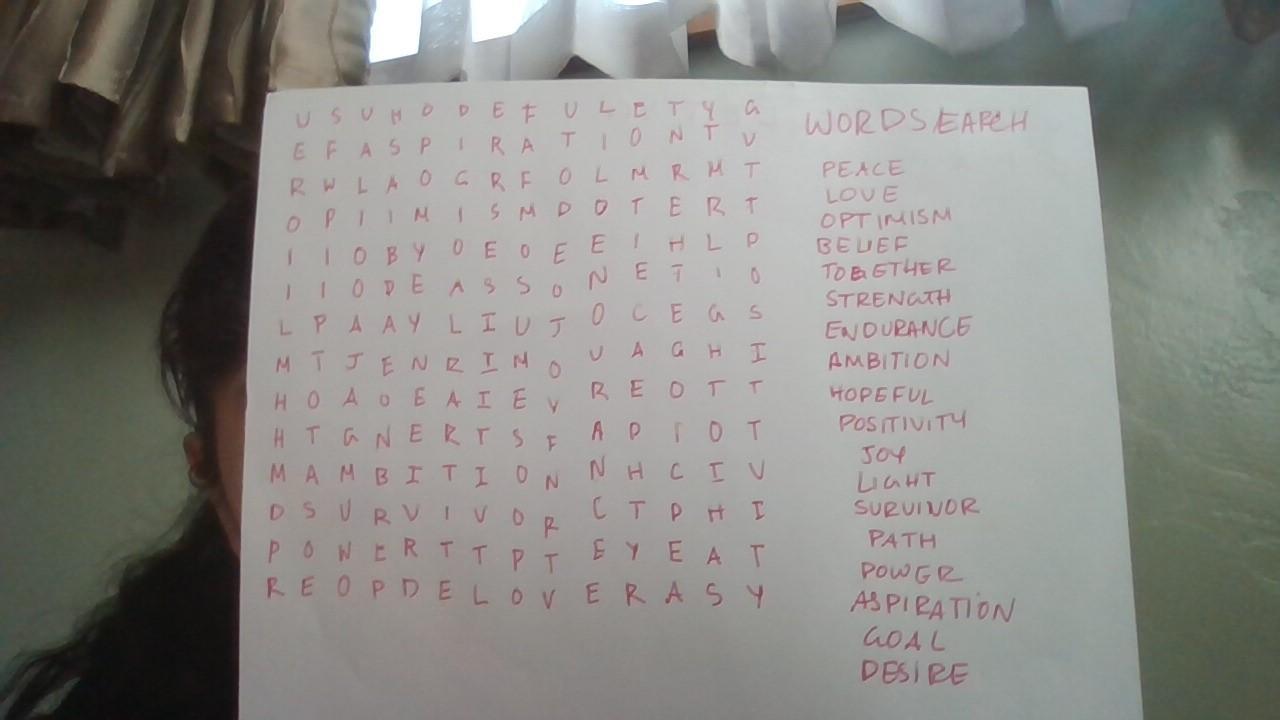 U S U H O D E F U L E T Y G
E F A S P I R A T I O N T V
R W L A O G R F O L M R M T
O P I I M I S M D O T E R T
I I O B Y O E O E E I H L P
I I O D E A S S O N E T I O
L P A A Y L I U J O C E G S
M T J E N R I M O U A G H I
H O A O E A I E V R E O T T
H T G N E R T S F A P I O T
M A M B I T I O N N H C I V
D S U R V I V O R C T P H I
P O W E R T T P T E Y E A T
R E O P D E L O V E R A S Y
WORDSEARCH
PEACE
LOVE
OPTIMISM
BELIEF
TOGETHER
STRENGTH
ENDURANCE
AMBITION
HOPEFUL
POSITIVITY
JOY
LIGHT
SURVIVOR
PATH
POWER
ASPIRATION
GOAL
DESIRE